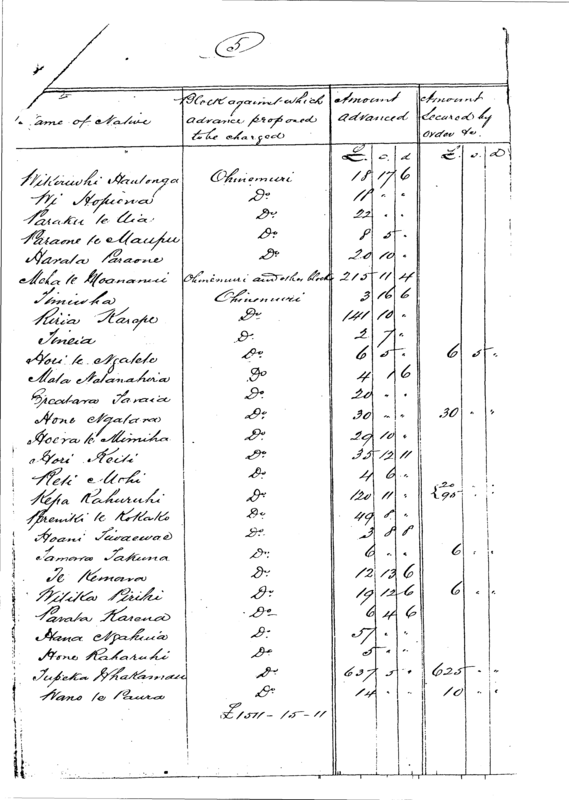 5
Name of Native | Block against which advance proposed to be charged | Amount advanced | Amount Secured by order &c.
£. s. d | £. s. D
Wikiriwhi Hautonga | Ohinemuri | 18 17 6
Wi Hopiewa | Do | 18 " "
Paraku te Uia | Do | 22 " "
Paraone te Maupu | Do | 8 5 "
Harata Paraone | Do | 20 10 "
Meha te Moananui | Ohinemuri and other blocks | 215 11 4
Timiuha | Ohinemuri | 3 16 6
Riria Karape | Do | 141 10 "
Tineia | Do | 2 7 "
Hori te Ngatete | Do | 6 5 " | 6 5 "
Mata Natanahira | Do | 4 1 6
Taraia | Do | 20 " "
Hone Ngatara | Do | 30 " " | 30 " "
Hoera te Mimiha | Do | 29 10 "
Hori Keiti | Do | 35 12 11
Reti | Do | 4 6 "
Kepa Rahuruhi | Do | 120 11 " | 20 £95 " "
te Kokako | Do | 49 8 "
Hoani | Do | 3 8 8
Tamara Takuna | Do | 6 " " | 6 " "
Te Kemara | Do | 12 13 6
Witika Piriki | Do | 19 12 6 | 6 " "
Parata Karena | Do | 6 4 6
Hana Ngahuia | Do | 57 " "
Hone Raharuhi | Do | 5 " "
Tupeka Whakamau | Do | 637 5 " | 625 " "
Wano te Paura | Do | 14 " " | 10 " "
£1511-15-11